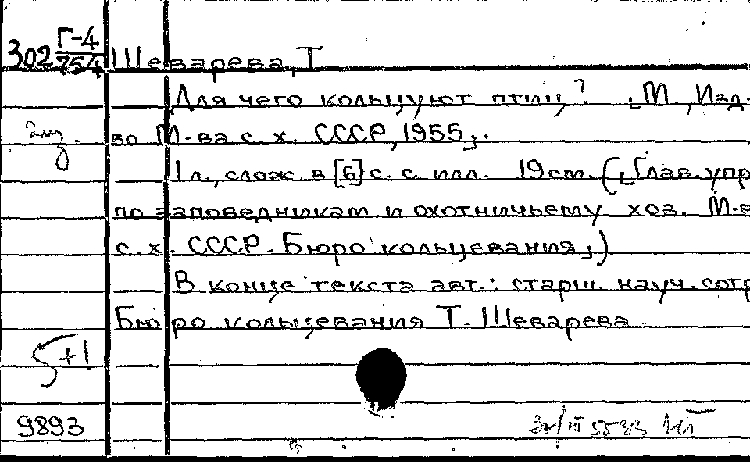 302 Г-4/754 Шеварева, Т
Для чего кольцуют птиц? [М., Изд-
во М-ва с. х. СССР, 1955].
1 л., слож. в [6] с. с илл. 19 см. ([Глав. упр
по заповедникам и охотничьему хоз. М-в
с. х. СССР. Бюро кольцевания])
В конце текста авт.: старш. науч. сотр
Бюро кольцевания Т. Шеварева
5+1
9893